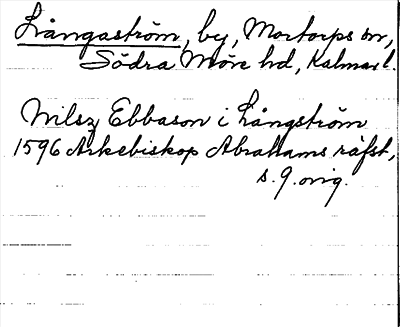 Långaström, by, Mortorps sn,
Södra Möre hd, Kalmar l.
Nilsz Ebbason i Långström
1596 Ärkebiskop Abrahams räfst,
s. 9. orig.